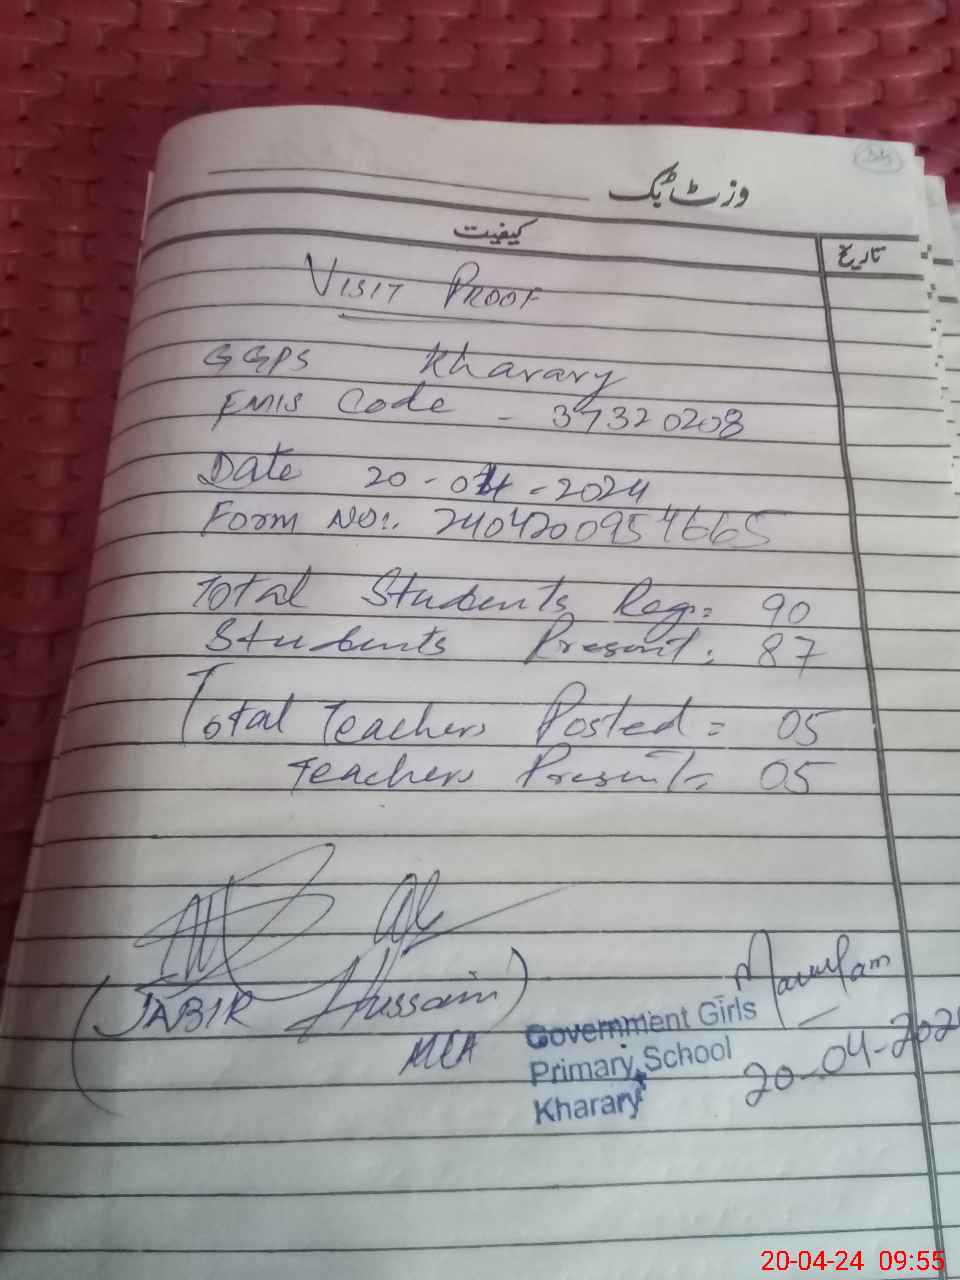 وزٹ بک
کیفیت
تاریخ
VISIT PROOF
GGPS Kharary
EMIS Code - 37320208
Date 20-04-2024
Form NO:. 2404200954665
Total Students Reg: 90
Students Present: 87
Total Teachers Posted = 05
Teachers Present = 05
(JABIR Hussain)
MEA
Government Girls
Primary School
Kharary
20-04-2024
20-04-24 09:55